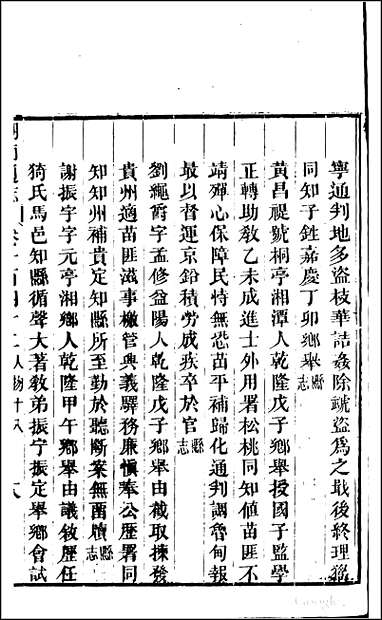 寧通判地多盜枝華詰姦除虣盜為之戢後終理猺
同知子銈嘉慶丁卯鄉舉縣志
黃昌禔號桐亭湘潭人乾隆戊子鄉舉授國子監學
正轉助敎乙未成進士外用署松桃同知値苗匪不
靖殫心保障民恃無恐苗平補歸化通判調魯甸報
最以督運京鉛積勞成疾卒於官縣志
劉繩爵字孟修益陽人乾隆戊子鄉舉由截取揀發
貴州適苗匪滋事檄管興義驛務廉愼奉公歷署同
知知州補貴定知縣所至勤於聽斷案無畱牘縣志
謝振字字元亭湘鄉人乾隆甲午鄉舉由議敘歷任
猗氏馬邑知縣循聲大著敎弟振宁振定舉鄉會試
湖南通志 卷一百四十二人物十八 八
Google